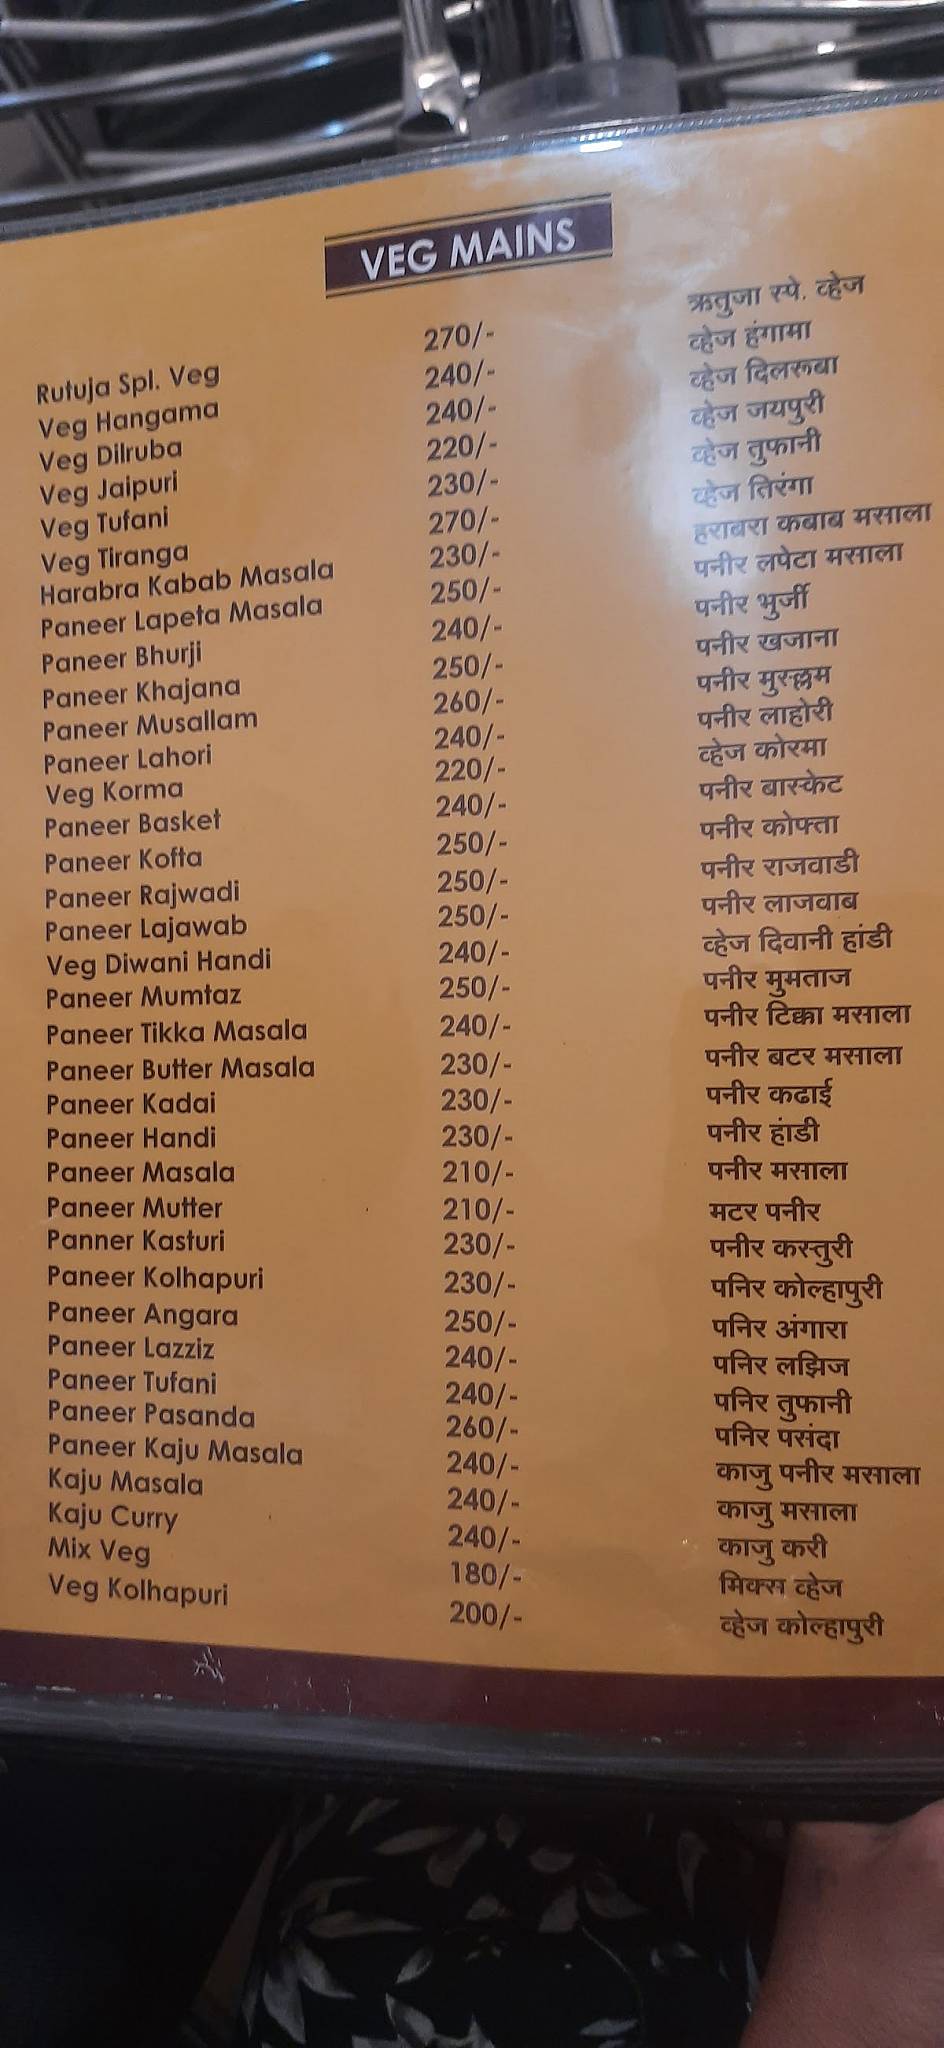 VEG MAINS
Rutuja Spl. Veg 270/- ऋतुजा स्पे. व्हेज
Veg Hangama 240/- व्हेज हंगामा
Veg Dilruba 240/- व्हेज दिलरूबा
Veg Jaipuri 220/- व्हेज जयपुरी
Veg Tufani 230/- व्हेज तुफानी
Veg Tiranga 270/- व्हेज तिरंगा
Harabra Kabab Masala 230/- हराबरा कबाब मसाला
Paneer Lapeta Masala 250/- पनीर लपेटा मसाला
Paneer Bhurji 240/- पनीर भुर्जी
Paneer Khajana 250/- पनीर खजाना
Paneer Musallam 260/- पनीर मुस्ल्लम
Paneer Lahori 240/- पनीर लाहोरी
Veg Korma 220/- व्हेज कोरमा
Paneer Basket 240/- पनीर बास्केट
Paneer Kofta 250/- पनीर कोफ्ता
Paneer Rajwadi 250/- पनीर राजवाडी
Paneer Lajawab 250/- पनीर लाजवाब
Veg Diwani Handi 240/- व्हेज दिवानी हांडी
Paneer Mumtaz 250/- पनीर मुमताज
Paneer Tikka Masala 240/- पनीर टिक्का मसाला
Paneer Butter Masala 230/- पनीर बटर मसाला
Paneer Kadai 230/- पनीर कढाई
Paneer Handi 230/- पनीर हांडी
Paneer Masala 210/- पनीर मसाला
Paneer Mutter 210/- मटर पनीर
Panner Kasturi 230/- पनीर कस्तुरी
Paneer Kolhapuri 230/- पनिर कोल्हापुरी
Paneer Angara 250/- पनिर अंगारा
Paneer Lazziz 240/- पनिर लझिज
Paneer Tufani 240/- पनिर तुफानी
Paneer Pasanda 260/- पनिर पसंदा
Paneer Kaju Masala 240/- काजु पनीर मसाला
Kaju Masala 240/- काजु मसाला
Kaju Curry 240/- काजु करी
Mix Veg 180/- मिक्स व्हेज
Veg Kolhapuri 200/- व्हेज कोल्हापुरी